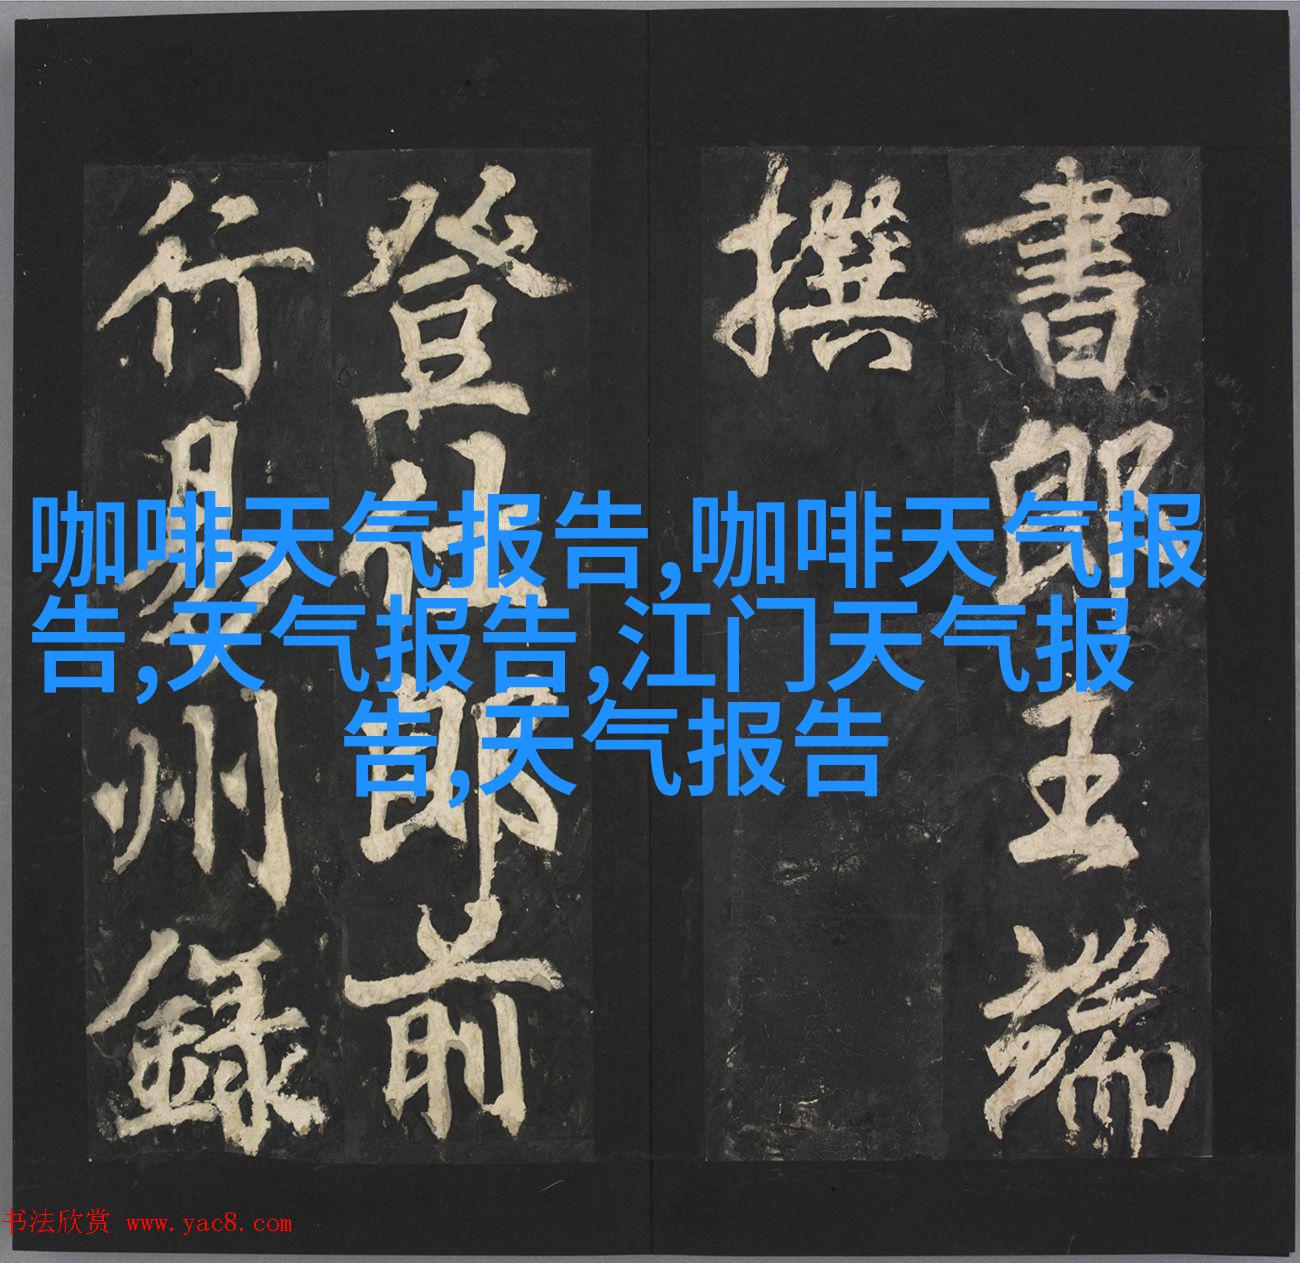 書郎王端
撰
登仕郎前
行易州錄
咖啡天气报告,咖啡天气报
告,天气报告,江门天气报
告,天气报告
书法欣赏 www.yac8.com